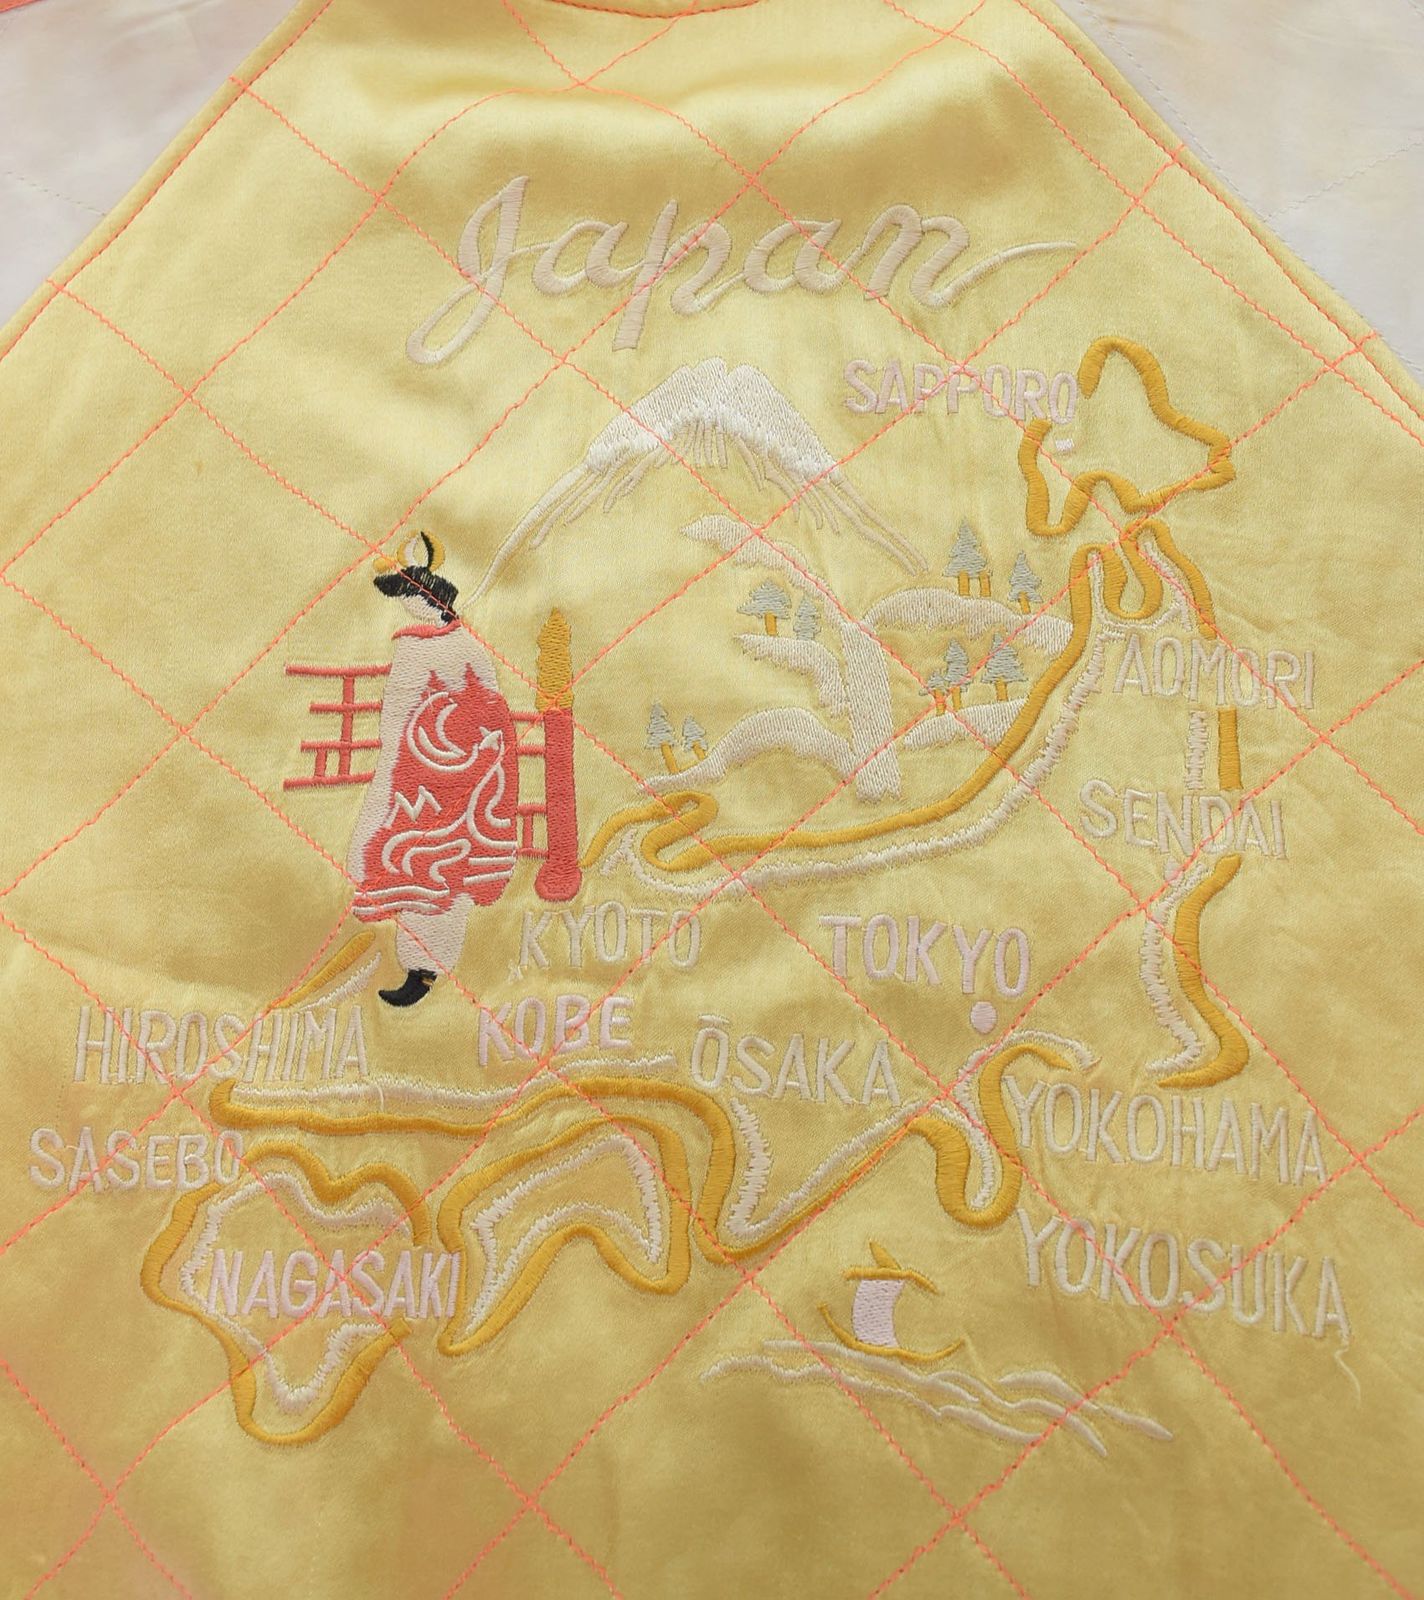 Japan
SAPPORO
AOMORI
SENDAI
KYOTO
TOKYO
KOBE
HIROSHIMA
ŌSAKA
YOKOHAMA
SASEBO
YOKOSUKA
NAGASAKI